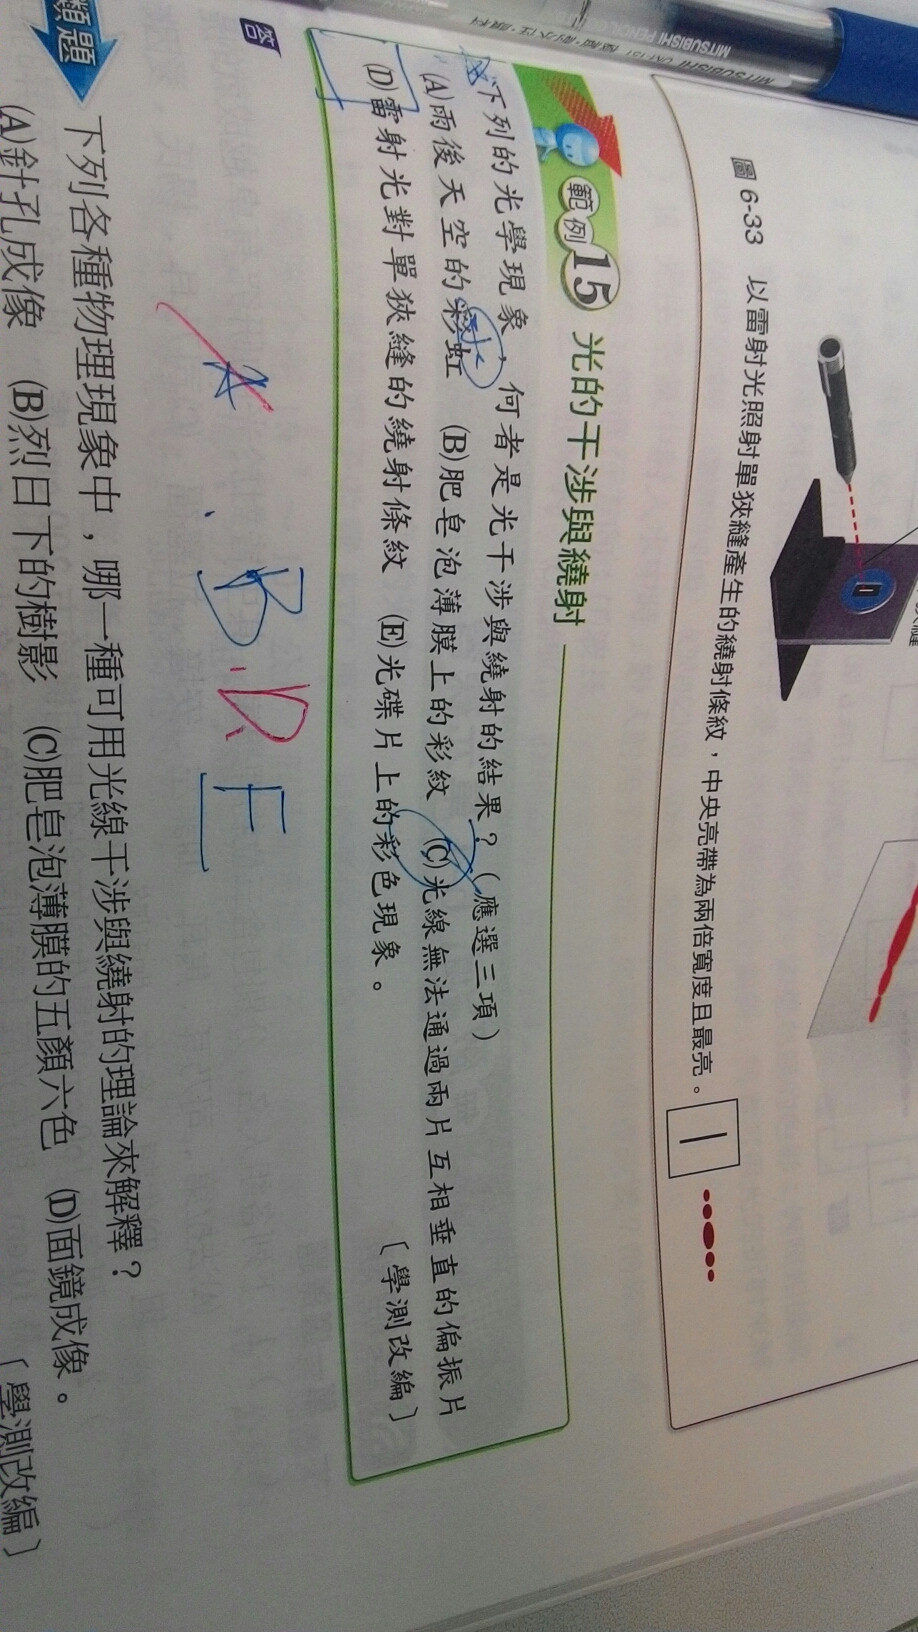 MITSUBISHI PENCIL
MITSUBISHI
圖 6-33 以雷射光照射單狹縫產生的繞射條紋，中央亮帶為兩倍寬度且最亮。
範例 15 光的干涉與繞射
下列的光學現象，何者是光干涉與繞射的結果？（應選三項）
(A)雨後天空的彩虹 (B)肥皂泡薄膜上的彩紋 (C)光線無法通過兩片互相垂直的偏振片
(D)雷射光對單狹縫的繞射條紋 (E)光碟片上的彩色現象。 〔學測改編〕
答
A. B. D. E
類題
下列各種物理現象中，哪一種可用光線干涉與繞射的理論來解釋？
(A)針孔成像 (B)烈日下的樹影 (C)肥皂泡薄膜的五顏六色 (D)面鏡成像。
〔學測改編〕